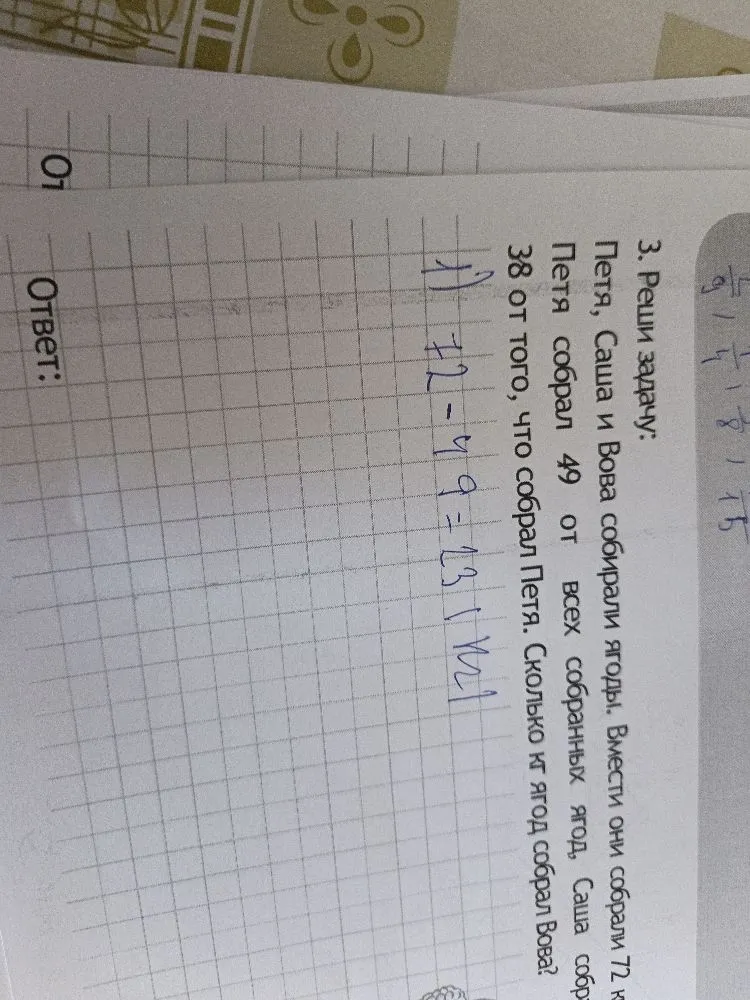 1/9, 1/4, 1/8, 1/15
3. Реши задачу:
Петя, Саша и Вова собирали ягоды. Вмести они собрали 72 к
Петя собрал 49 от всех собранных ягод, Саша собр
38 от того, что собрал Петя. Сколько кг ягод собрал Вова?
1) 72-49=23 (кг)
От
Ответ: